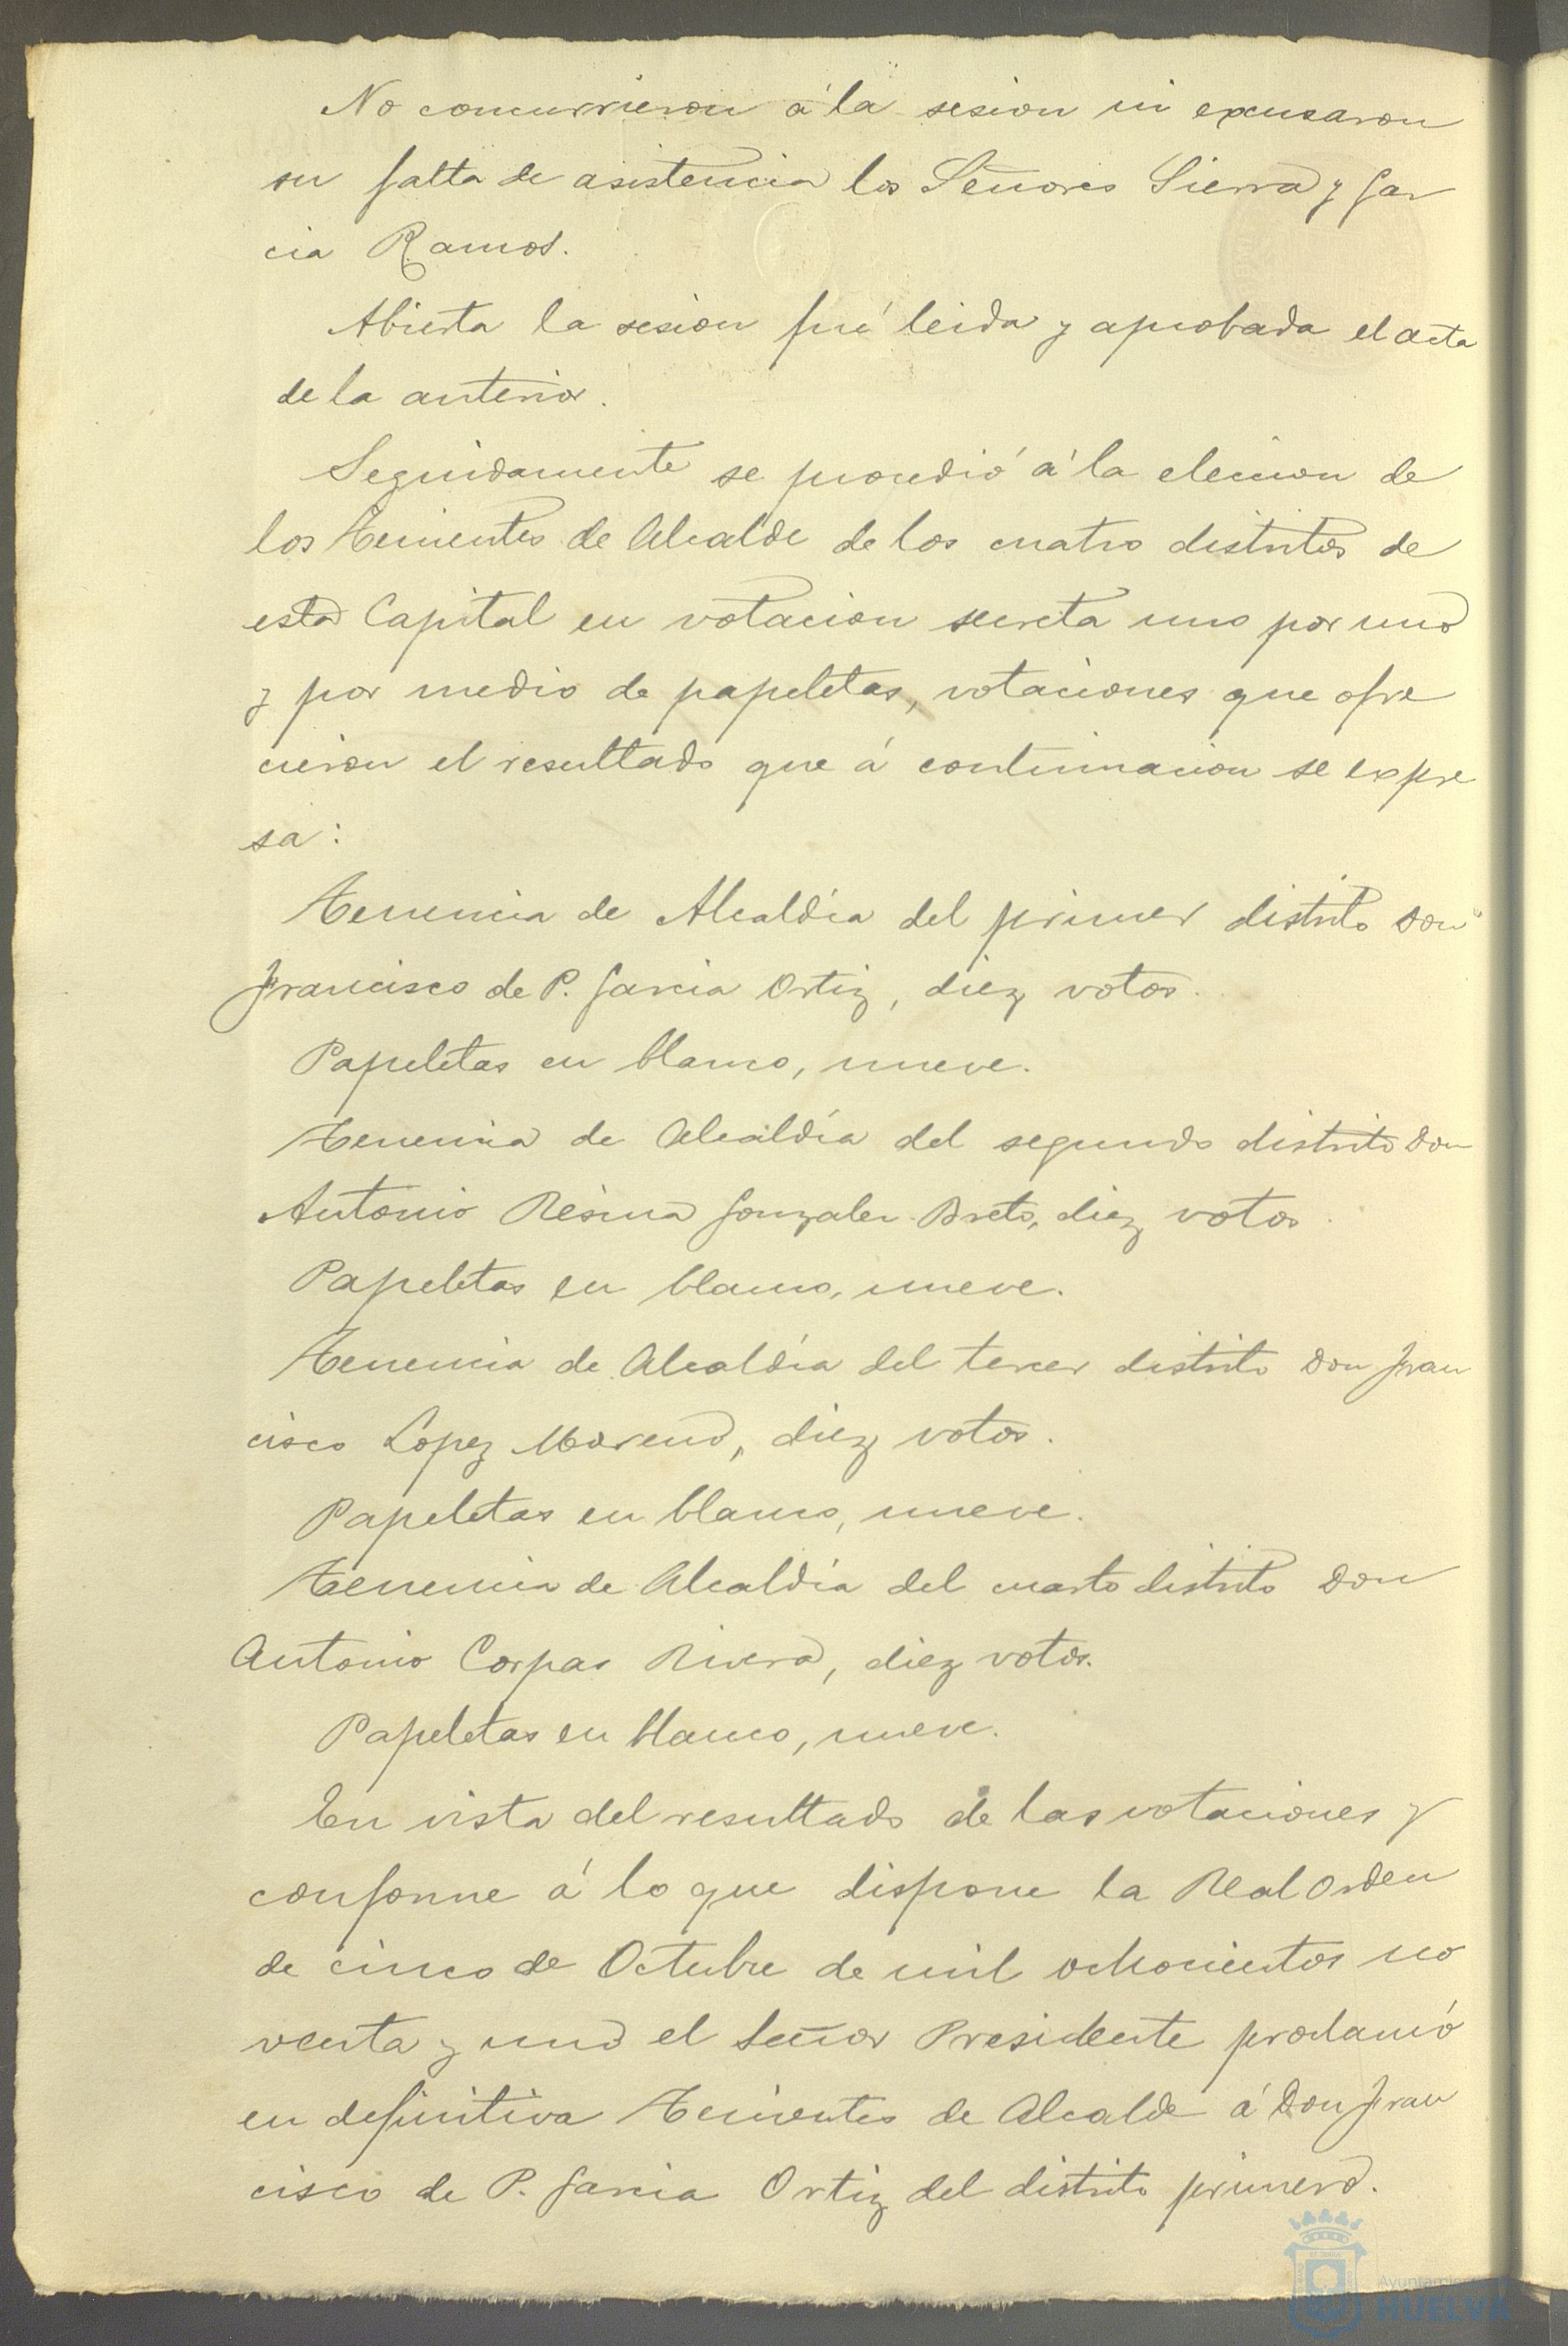 No concurrieron á la sesion ni excusaron
su falta de asistencia los Señores Sierra y Gar
cia Ramos.
Abierta la sesion fué leida y aprobada el acta
de la anterior.
Seguidamente se procedió á la eleccion de
los Tenientes de Alcalde de los cuatro distritos de
esta Capital en votacion secreta uno por uno
y por medio de papeletas, votaciones que ofre
cieron el resultado que á continuacion se expre
sa:
Tenencia de Alcaldía del primer distrito Don
Francisco de P. Garcia Ortiz, diez votos.
Papeletas en blanco, nueve.
Tenencia de Alcaldía del segundo distrito Don
Antonio Gonzalez diez votos.
Papeletas en blanco, nueve.
Tenencia de Alcaldía del tercer distrito Don Fran
cisco Lopez Moreno, diez votos.
Papeletas en blanco, nueve.
Tenencia de Alcaldía del cuarto distrito Don
Antonio Corpas Rivera, diez votos.
Papeletas en blanco, nueve.
En vista del resultado de las votaciones y
conforme á lo que dispone la Real Orden
de cinco de Octubre de mil ochocientos no
venta y uno el Señor Presidente proclamó
en definitiva Tenientes de Alcalde á Don Fran
cisco de P. Garcia Ortiz del distrito primero.
HUELVA